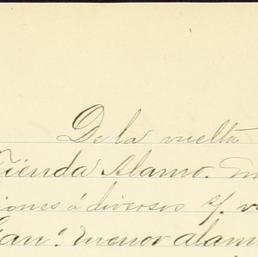 De la vuelta
Tienda Alamo.
ciones á diversos s/. v
Gan.º menor alam